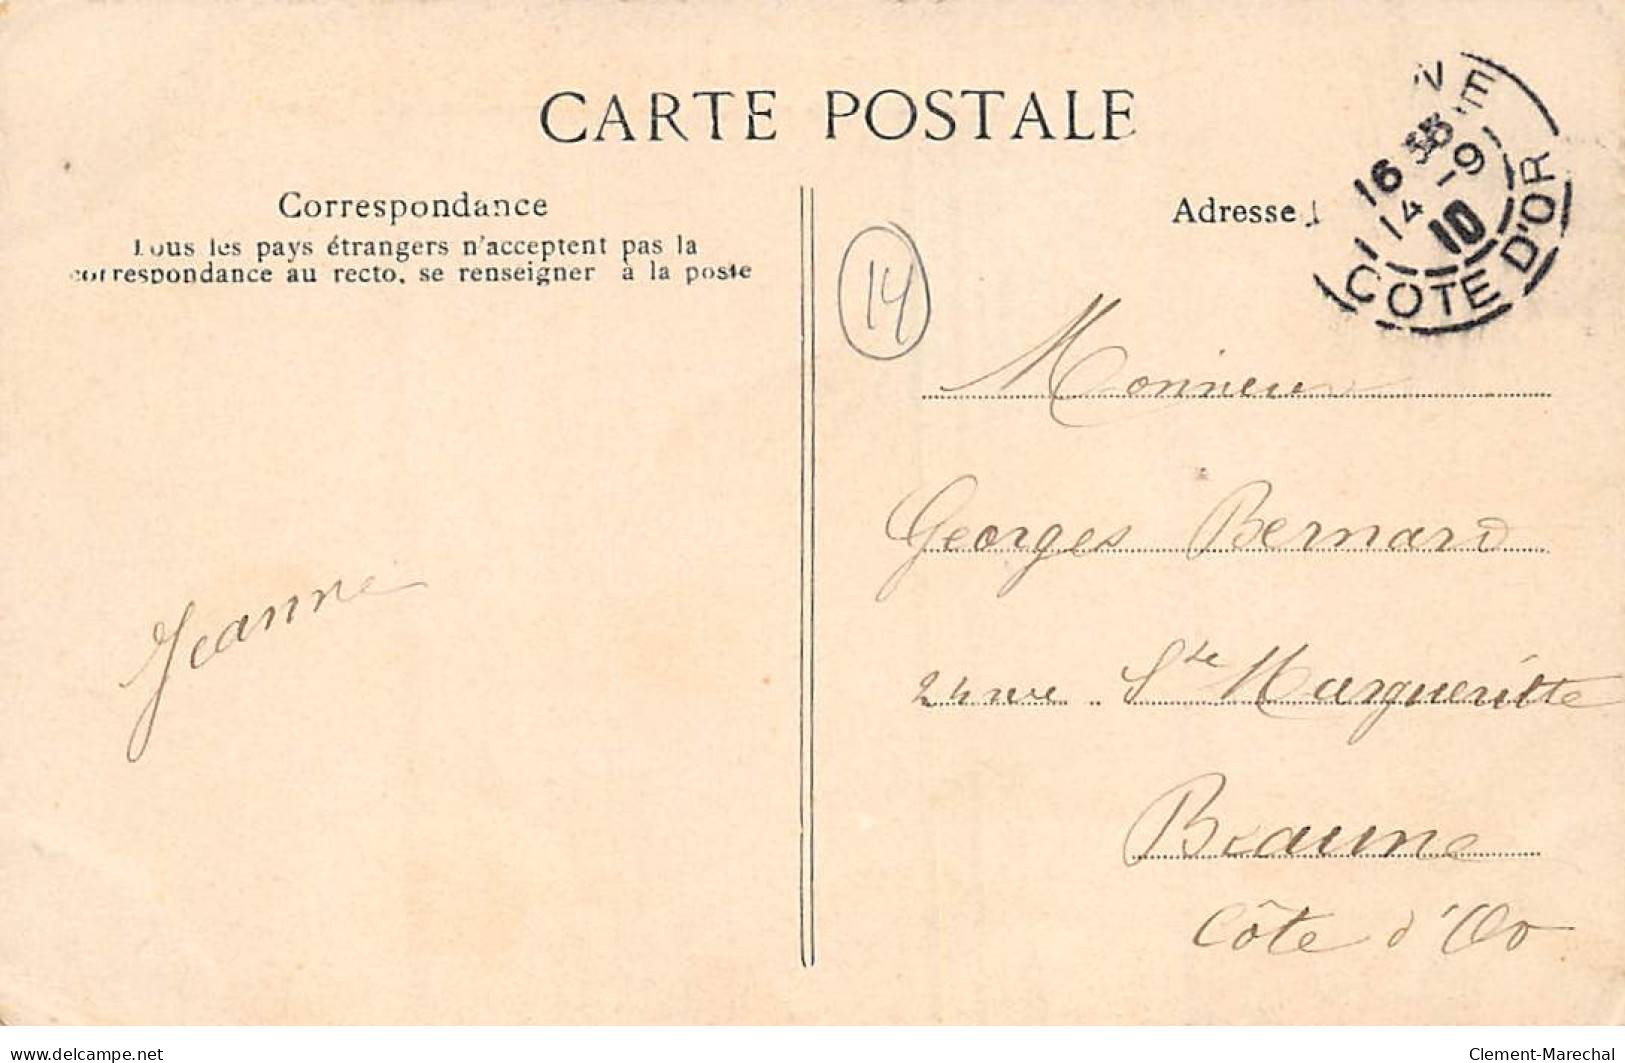 CARTE POSTALE
Correspondance
Tous les pays étrangers n'acceptent pas la
correspondance au recto, se renseigner à la poste
Adresse
16 35
14 -9
10
COTE D'OR
14
Monsieur
Georges Bernard
24 rue Ste Margueritte
Beaune
Côte d'Or
Jeanne
delcampe.net
Clement-Marechal